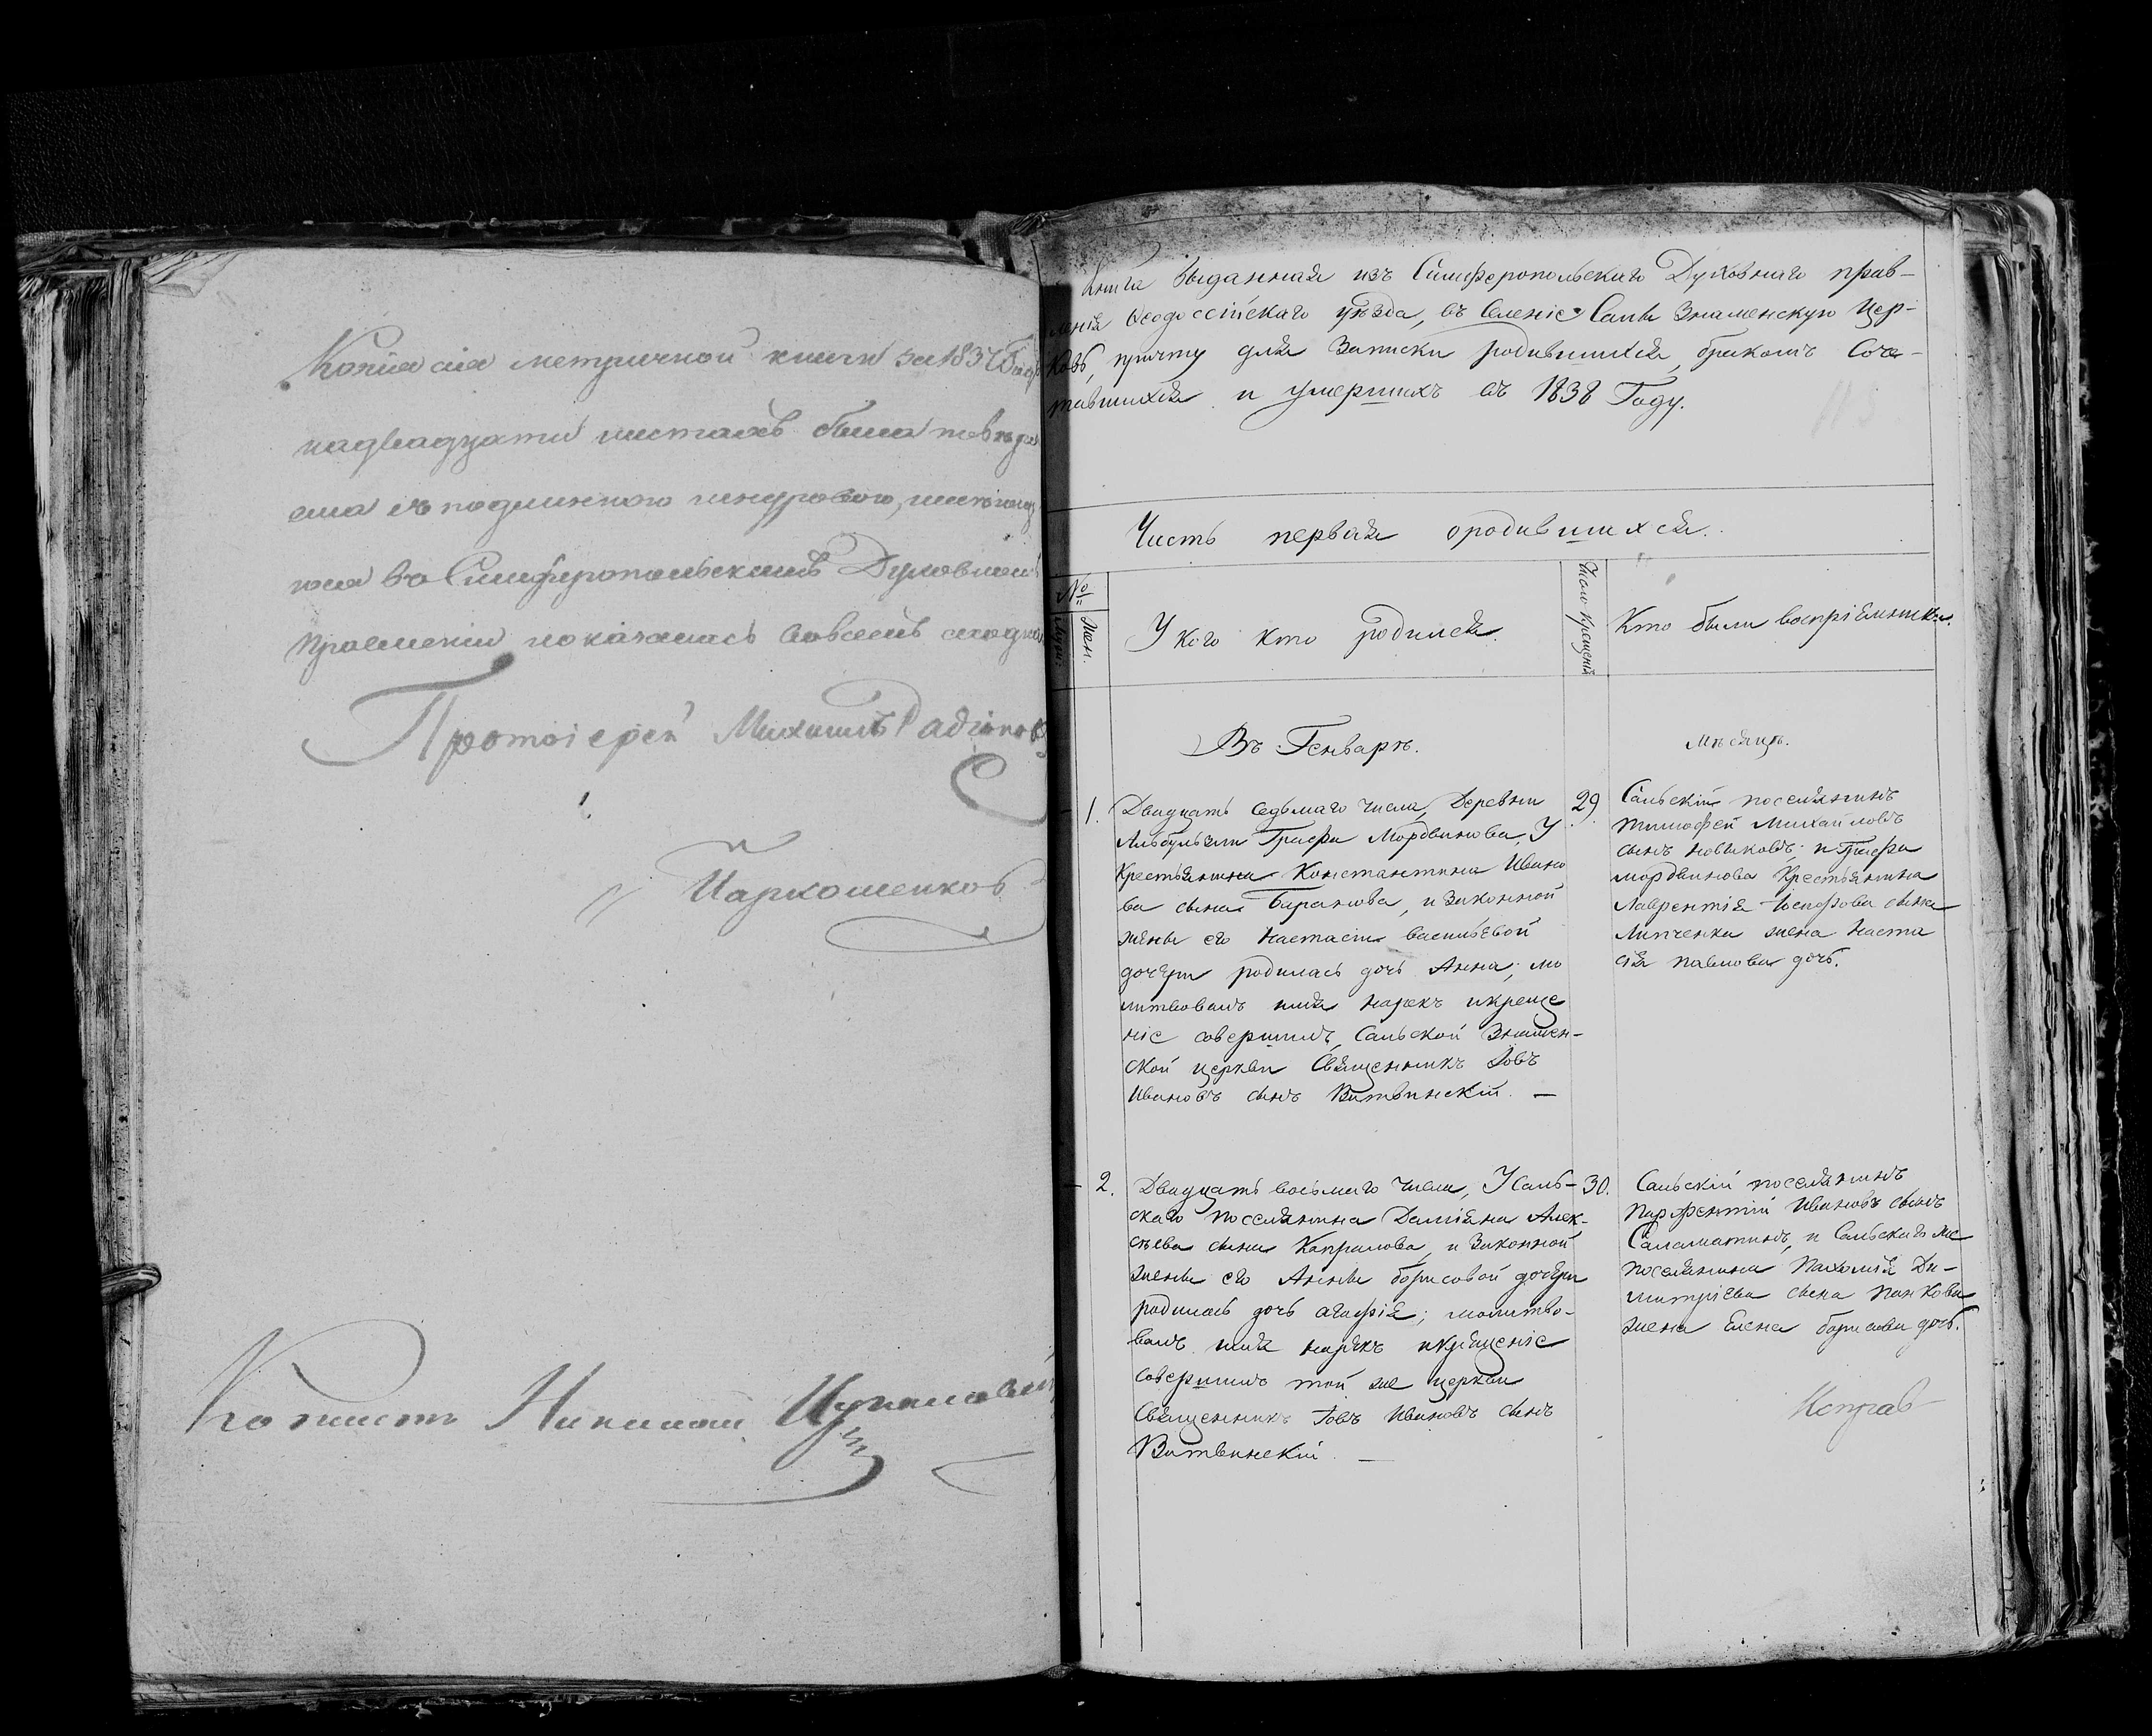 Копiя сiя метричной книги за 1837 Годъ
надвадцати листахъ была повѣря
ема съ подлинною шнуровою, и
вовсемъ сходною
Симферопольскимъ Духовнымъ
Правленiи показалась вовсемъ сходна
Протоiерей Михаилъ Радiонов
Пархоменков
Копiистъ Николай
Книга Выданная изъ Симферопольскаго Духовнаго прав-
ленiя Ѳеодосiйскаго уѣзда, въ Селенiе Салы Знаменскую Цер-
ковь, причту для Записки родившихся, бракомъ Соче-
тавшихся и умершихъ въ 1838 Году.
Часть первая ородившихся.
№
Муж. Жен.
У кого кто родился.
Число крещенiя
Кто были воспрiемники.
Въ Генварѣ.
Мѣсяцѣ.
1. Двадцать Седьмаго числа, Деревни
Графа Мордвинова, У
Крестьянина Константина Ивано
ва сына Баранова, и Законной
жены его Настасiи васильевой
дочери родилась дочь Анна; мо
литвовалъ имя нарекъ икреще
нiе совершилъ, Сальской Знамен-
ской церкви Священникъ Iовъ
Ивановъ сынъ Витвинскiй. —
29.
Сальскiй поселянинъ
тимофей Михайловъ
сынъ новиковъ; и Графа
мордвинова Крестьянина
Лаврентiя Iосифова сына
Липченка жена наста
сiя павлова дочь.
2. Двадцать восьмаго числа, У Саль-
скаго поселянина Дамiяна Алек-
сѣева сына Капралова, и Законной
жены его Анны борисовой дочери
родилась дочь агафiя; молитво-
валъ имя нарекъ икрещенiе
совершилъ той же церкви
Священникъ Iовъ Ивановъ сынъ
Витвинскiй. —
30.
Сальскiй поселянинъ
парфентiй Ивановъ сынъ
Саламатинъ, и Сальскагоже
поселянина Пахомiя Ди-
митрiева сына панкова
жена Елена борисова дочь.
Исправ